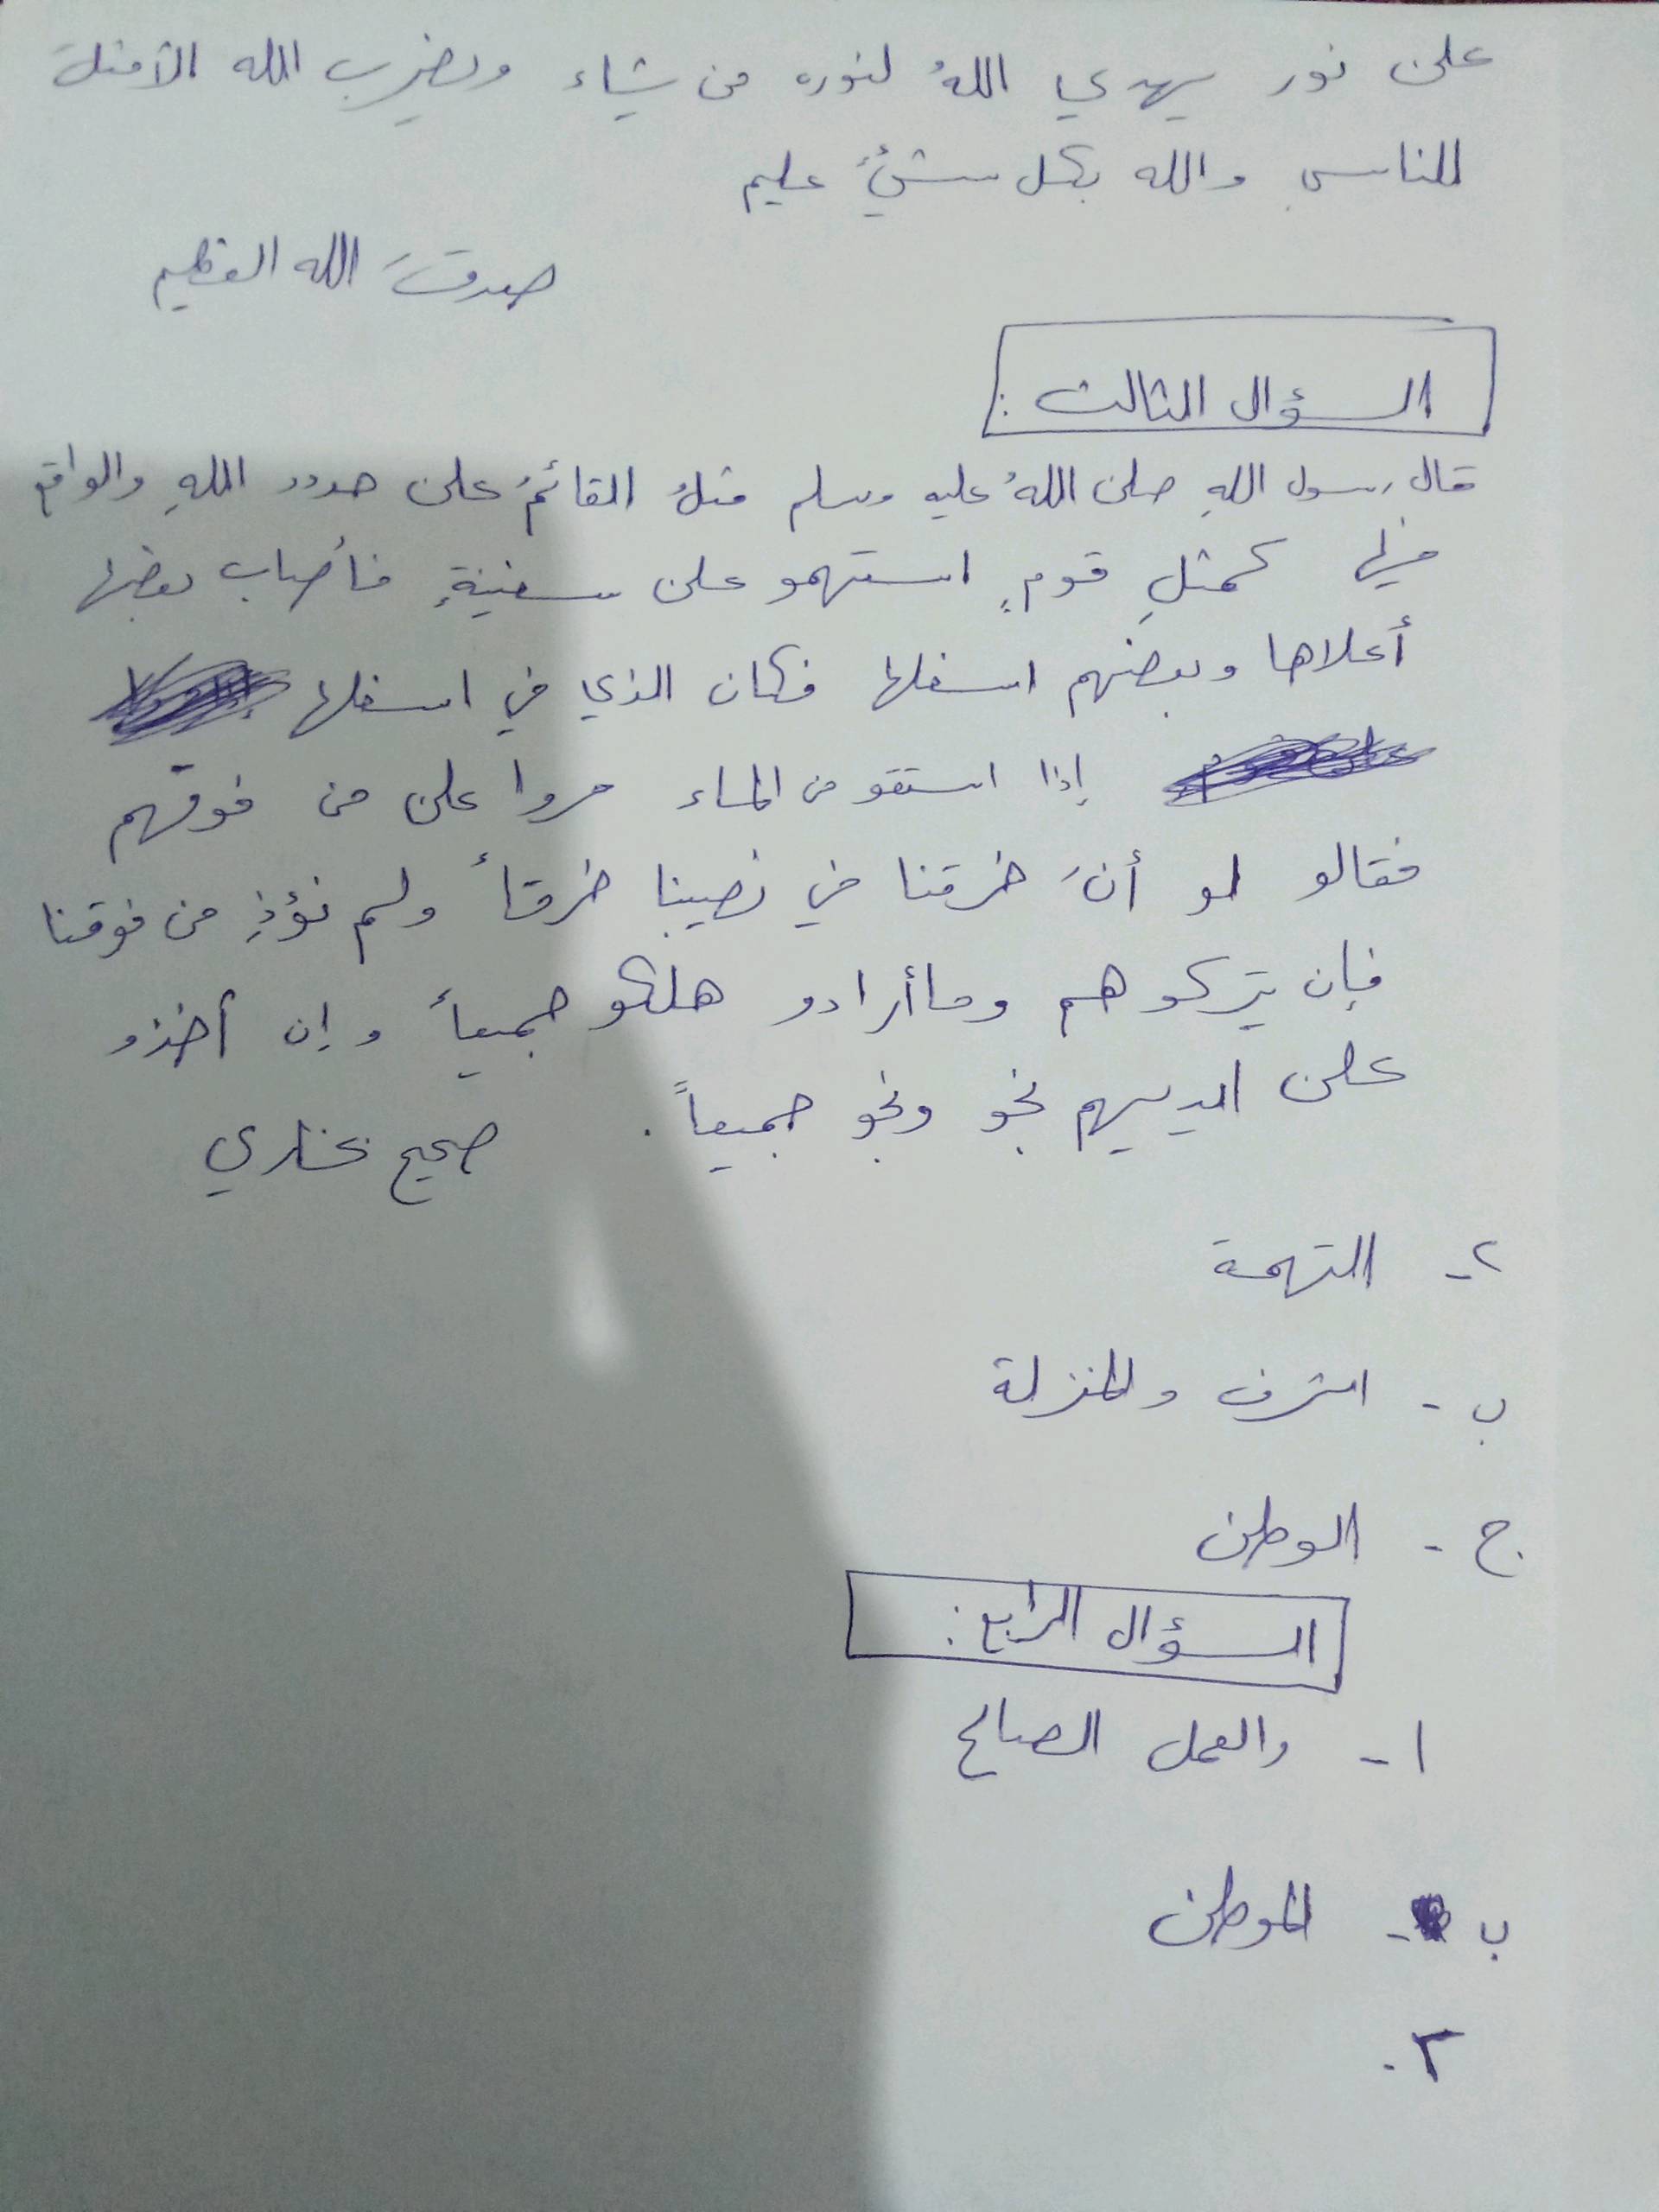 على نور يهدي اللهُ لنوره من يشاء ويضرب الله الأمثلة
للناس والله بكل شيءٍ عليم
صدقَ الله العظيم
السؤال الثالث :
قال رسول اللهِ صلى اللهُ عليه وسلم مثلُ القائمُ على حدود اللهِ والواقع
فيها كمثلِ قومٍ استهمو على سفينةٍ فأصاب بعضها
أعلاها وبعضهم اسفلها فكان الذي في اسفلها
إذا استقو من الماء مروا على من فوقهم
فقالو لو أنَ خرقنا في نصيبنا خرقاً ولم نؤذِ من فوقنا
فإن يتركوهم وماأرادو هلكو جميعاً وإن أخذو
على ايديهم نجو ونجو جميعاً . صحيح بخاري
٢- التهمة
ب - الشرف والمنزلة
ج - الوطن
السؤال الرابع :
١- والعمل الصالح
ب - الموطن
٢.